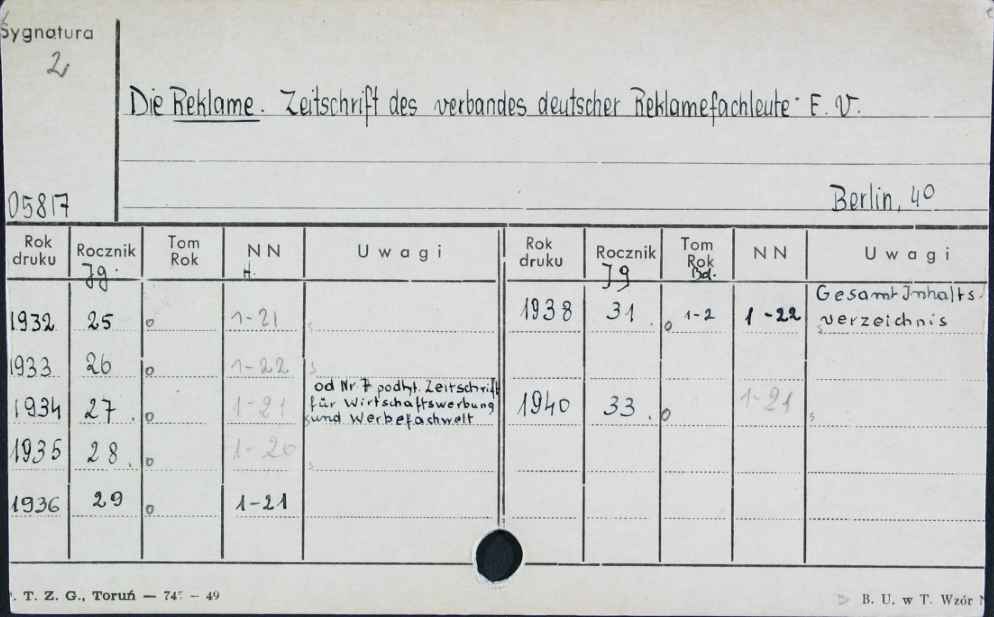 Sygnatura
2
Die Reklame. Zeitschrift des verbandes deutscher Reklamefachleute E. V.
05817
Berlin, 40
Rok druku Rocznik Jg. Tom Rok NN H. Uwagi Rok druku Rocznik Jg Tom Rok Bd. NN Uwagi
1932 25 1-21 1938 31. 1-2 1-22 Gesamt Inhalts verzeichnis
1933 26 1-22
1934 27. 1-21 od Nr 7 podtyt. Zeitschrift für Wirtschaftswerbung und Werbefachwelt 1940 33. 1-21
1935 28. 1-20
1936 29 1-21
T. Z. G., Toruń — 74 — 49
B. U. w T. Wzór